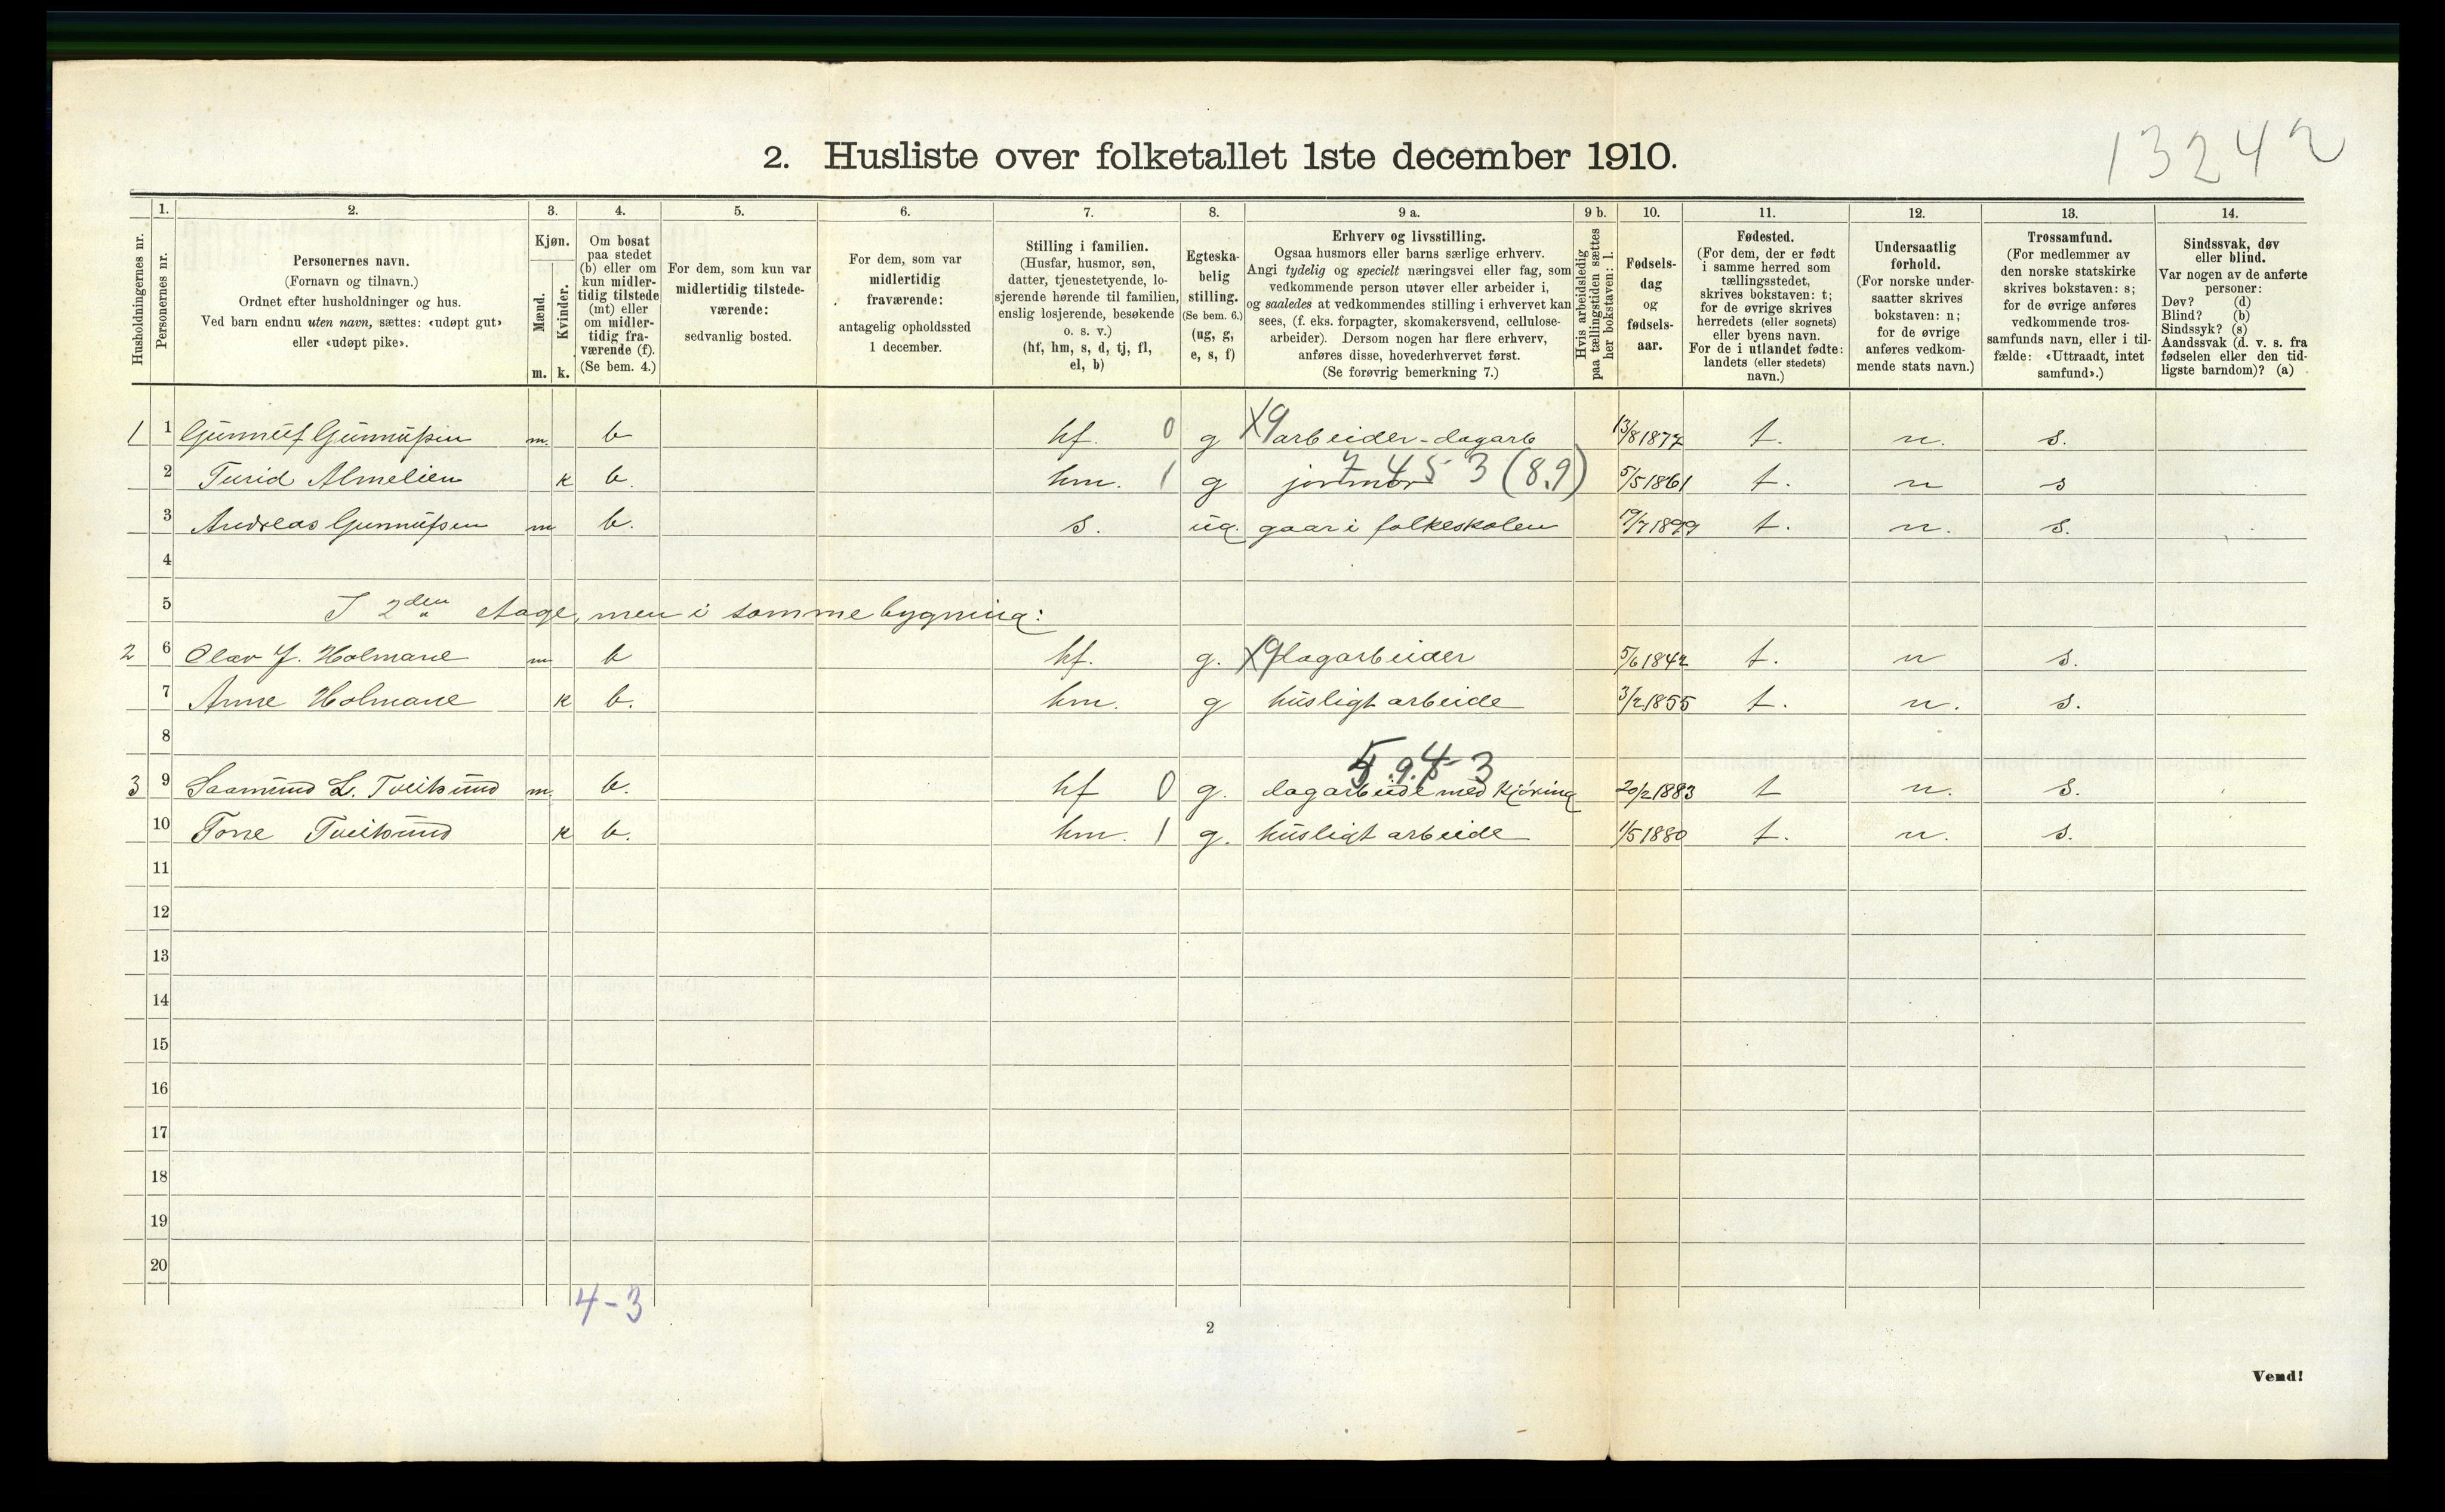 13242
2. Husliste over folketallet 1ste december 1910.
Husholdningernes nr.
1. Personernes nr.
2. Personernes navn. (Fornavn og tilnavn.) Ordnet efter husholdninger og hus. Ved barn endnu uten navn, sættes: «udøpt gut» eller «udøpt pike».
3. Kjøn. Mænd. m. Kvinder. k.
4. Om bosat paa stedet (b) eller om kun midlertidig tilstede (mt) eller om midlertidig fraværende (f). (Se bem. 4.)
5. For dem, som kun var midlertidig tilstedeværende: sedvanlig bosted.
6. For dem, som var midlertidig fraværende: antagelig opholdssted 1 december.
7. Stilling i familien. (Husfar, husmor, søn, datter, tjenestetyende, losjerende hørende til familien, enslig losjerende, besøkende o. s. v.) (hf, hm, s, d, tj, fl, el, b)
8. Egteskabelig stilling. (Se bem. 6.) (ug, g, e, s, f)
9 a. Erhverv og livsstilling. Ogsaa husmors eller barns særlige erhverv. Angi tydelig og specielt næringsvei eller fag, som vedkommende person utøver eller arbeider i, og saaledes at vedkommendes stilling i erhvervet kan sees, (f. eks. forpagter, skomakersvend, cellulosearbeider). Dersom nogen har flere erhverv, anføres disse, hovederhvervet først. (Se forøvrig bemerkning 7.)
9 b. Hvis arbeidsledig paa tællingstiden sættes her bokstaven: l.
10. Fødselsdag og fødselsaar.
11. Fødested. (For dem, der er født i samme herred som tællingsstedet, skrives bokstaven: t; for de øvrige skrives herredets (eller sognets) eller byens navn. For de i utlandet fødte: landets (eller stedets) navn.)
12. Undersaatlig forhold. (For norske undersaatter skrives bokstaven: n; for de øvrige anføres vedkommende stats navn.)
13. Trossamfund. (For medlemmer av den norske statskirke skrives bokstaven: s; for de øvrige anføres vedkommende trossamfunds navn, eller i tilfælde: «Uttraadt, intet samfund».)
14. Sindssvak, døv eller blind. Var nogen av de anførte personer: Døv? (d) Blind? (b) Sindssyk? (s) Aandssvak (d. v. s. fra fødselen eller den tidligste barndom)? (a)
1 1 Gunnuf Gunnufsen m. b hf. 0 g X9 arbeider-dagarb 13/8 1877 t. n. s.
2 Turid Almelien k b. hm. 1 g jormor 7 4 5 3 (8.9) 5/5 1861 t. n s
3 Andreas Gunnufsen m b. s. ug. gaar i folkeskolen 19/7 1899 t. n. s.
4
5 I 2den etage, men i samme bygning:
2 6 Olav J. Holmane m b hf. g. X9 dagarbeider 5/6 1842 t. n s.
7 Anne Holmane k b. hm. g husligt arbeide 3/2 1855 t. n. s.
8
5.9.4-3
3 9 Saamund L. Tveitsund m. b. hf 0 g. dagarbeide med kjøring 20/2 1883 t n. s.
10 Tone Tveitsund k b. hm. 1 g. husligt arbeide 1/5 1880 t. n. s.
11
12
13
14
15
16
17
18
19
20
4-3
2
Vend!